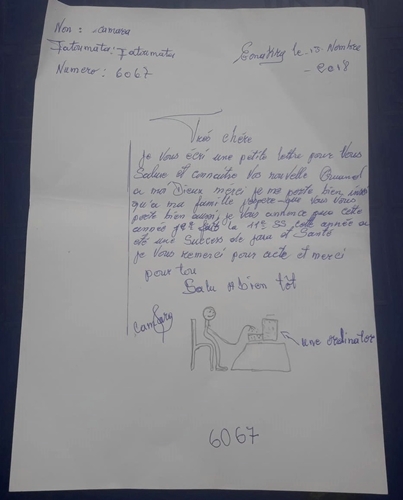 Non : camara
Fatoumata : Fatoumata
Numero : 6067
Conakry le 13 Novembre
2018
Très chère
Je Vous écri une petite lettre pour Vous
Salue et connaitre Vos nouvelle Quand
a moi Dieux merci je me porte bien, insi
qu'a ma famille j'espere que Vous Vous
porte bien aussi, je Vous annonce que cette
année je fait la 11e SS cette année a
eté une Success de joui et Santé
Je Vous remerci pour acte et merci
pour tou
Salu Abien tôt
Camara
une ordinator
6067